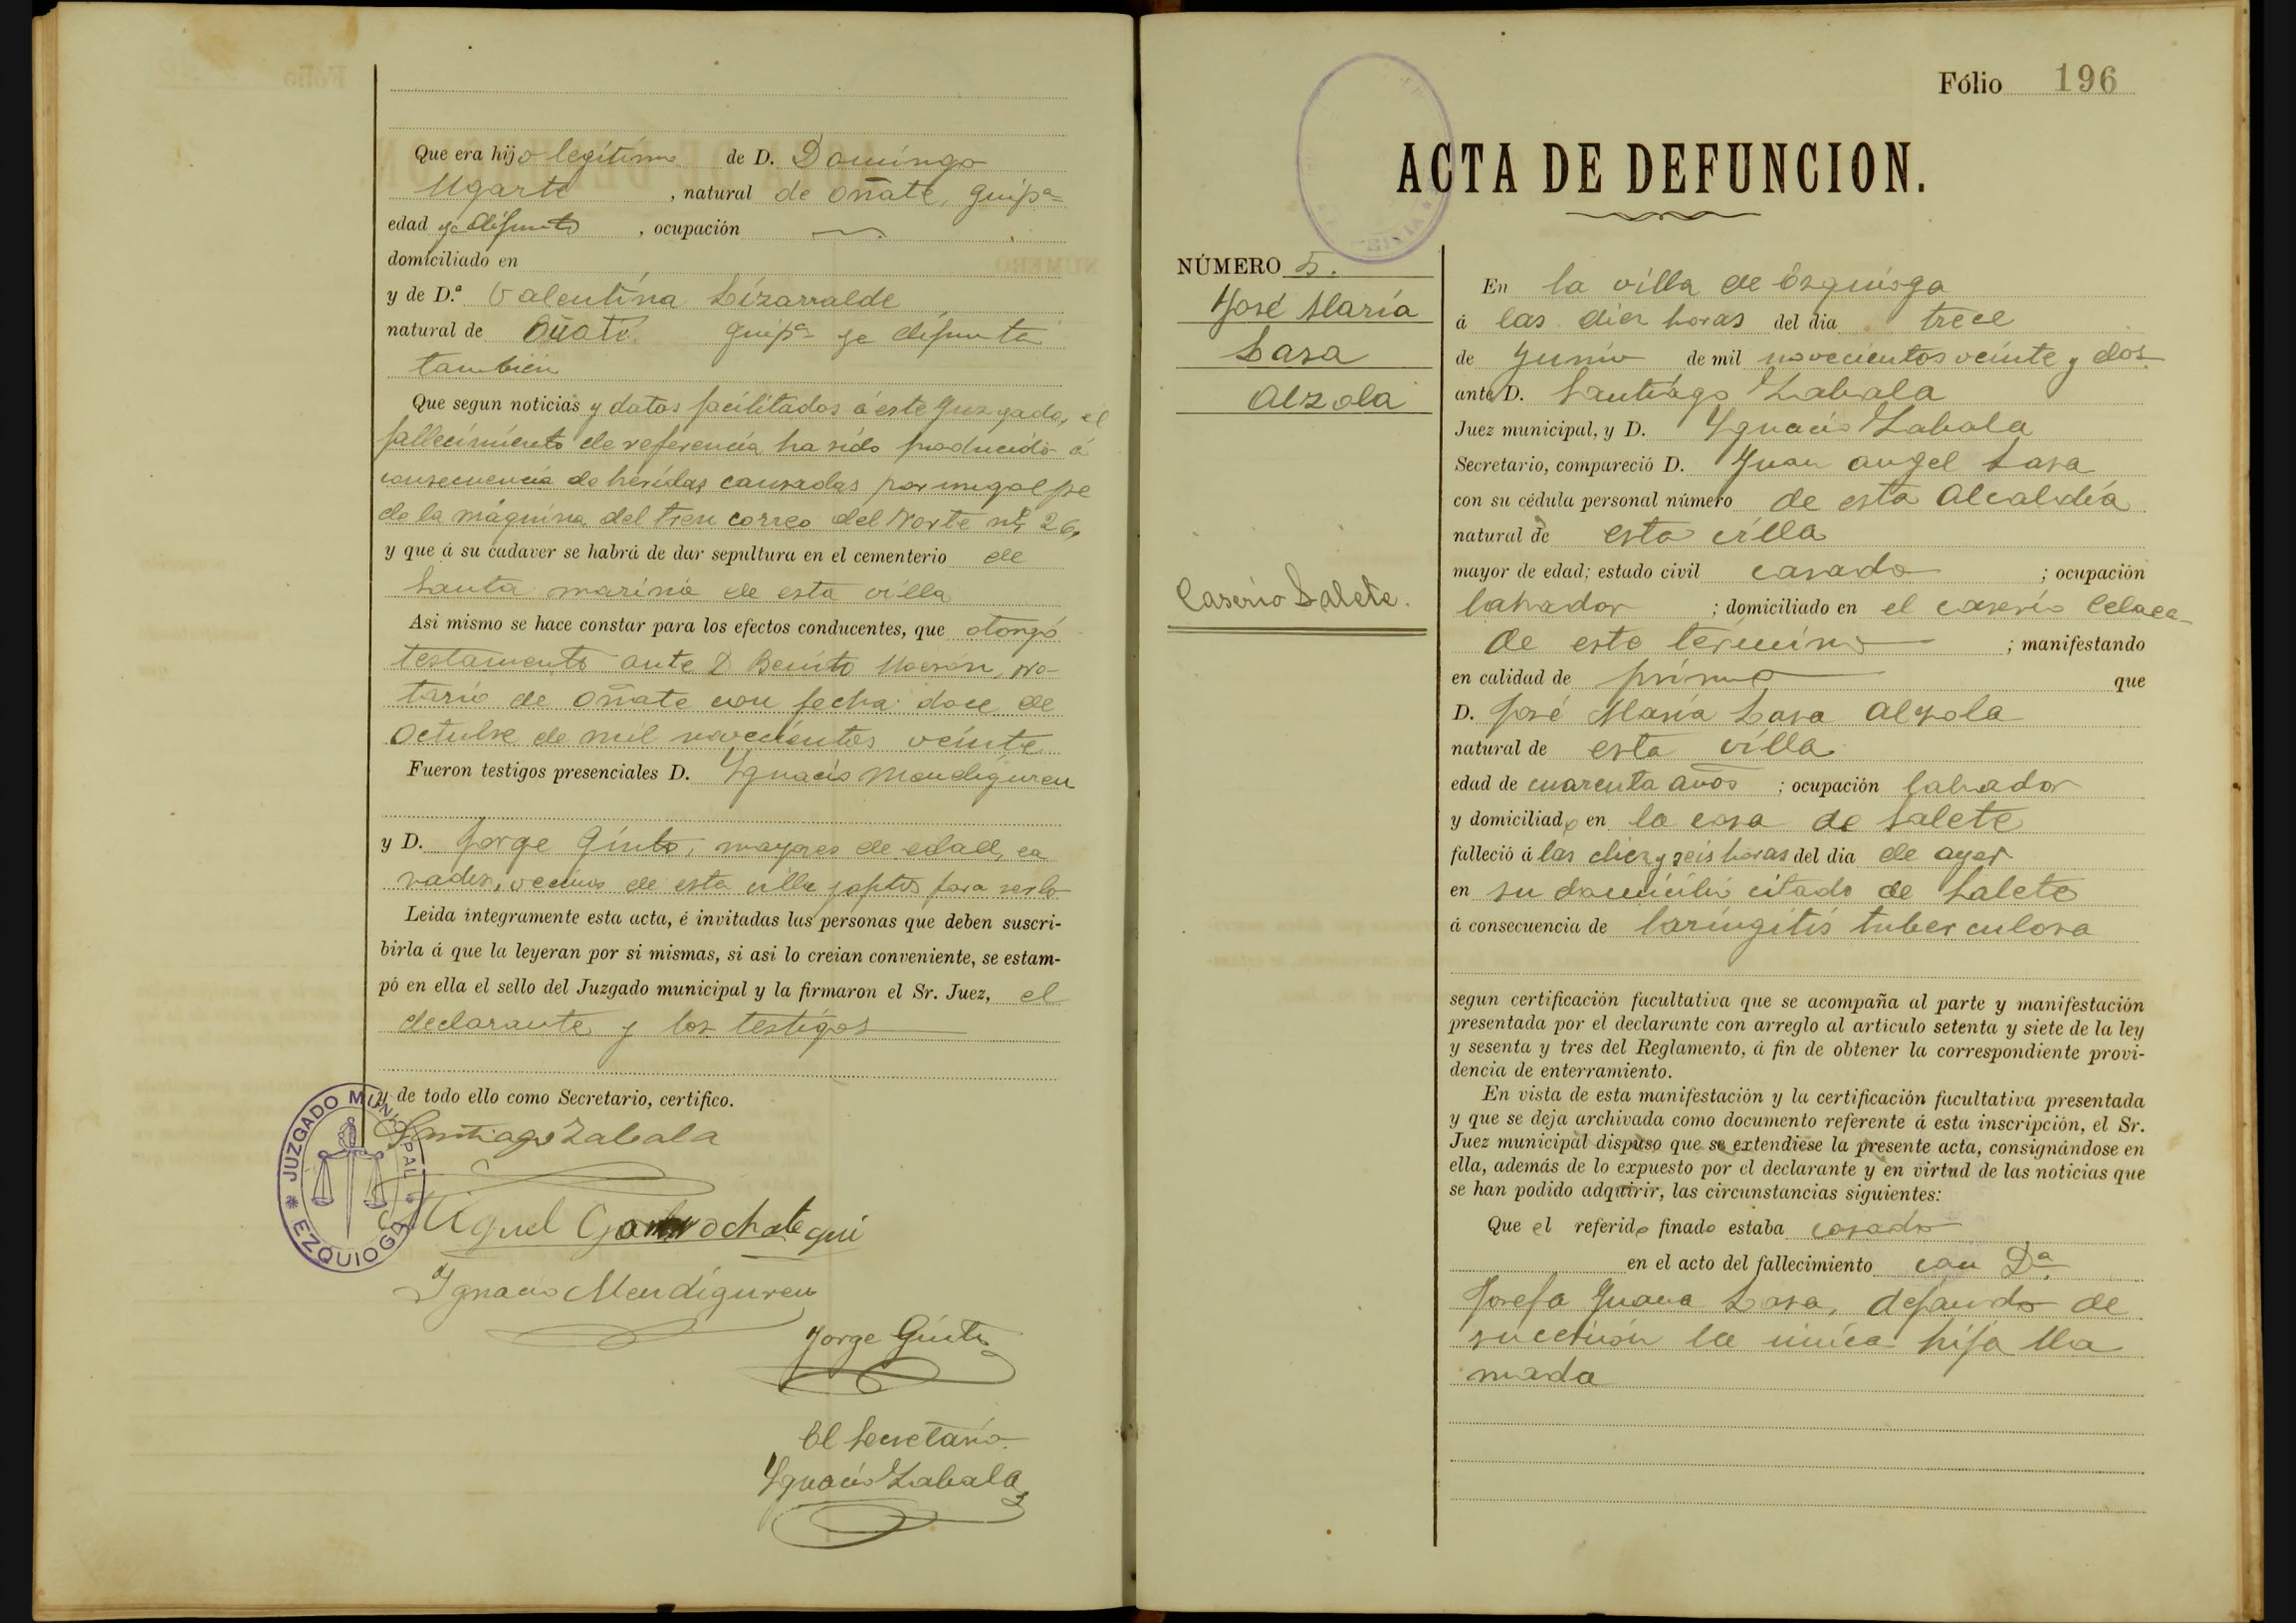 Que era hijo legítimo de D. Domingo
Ugarte, natural de Oñate, Guipª
edad ya difunto, ocupación
domiciliado en
y de D.ª Valentina Lizarralde
natural de Oñate. Guipª ya difunta
también
Que segun noticias y datos facilitados á este Juzgado, el
fallecimiento de referencia ha sido producido á
consecuencia de heridas causadas por un golpe
de la máquina del tren correo del Norte nº 26,
y que á su cadaver se habrá de dar sepultura en el cementerio de
Santa Marina de esta villa
Asi mismo se hace constar para los efectos conducentes, que otorgó
testamento ante D Benito, No-
tario de Oñate con fecha doce de
Octubre de mil novecientos veinte
Fueron testigos presenciales D. Ygnacio Mendiguren
y D. Jorge Ginto, mayores de edad, ca
sados, vecinos de esta villa y aptos para serlo
Leida íntegramente esta acta, é invitadas las personas que deben suscri-
birla á que la leyeran por si mismas, si asi lo creian conveniente, se estam-
pó en ella el sello del Juzgado municipal y la firmaron el Sr. Juez, el
declarante y los testigos
y de todo ello como Secretario, certifico.
Santiago Zabala
JUZGADO MUNICIPAL * EZQUIOGA *
Miguel Gorrochategui
Ygnacio Mendiguren
Jorge Ginto
El Secretario.
Ygnacio Zabala
Fólio 196
ACTA DE DEFUNCION.
NÚMERO 5.
José María
Lasa
Alzola
Caserio Salete.
En la villa de Ezquioga
á las diez horas del dia trece
de Junio de mil novecientos veinte y dos
ante D. Santiago Zabala
Juez municipal, y D. Ygnacio Zabala
Secretario, compareció D. Juan Angel Lasa
con su cédula personal número de esta Alcaldía
natural de esta villa
mayor de edad; estado civil casado ; ocupación
labrador ; domiciliado en el caserío
de este término ; manifestando
en calidad de primo que
D. José María Lasa Alzola
natural de esta villa
edad de cuarenta años ; ocupación labrador
y domiciliado en la casa de Salete
falleció á las diez y seis horas del dia de ayer
en su domicilio citado de Salete
á consecuencia de laringitis tuberculosa
segun certificación facultativa que se acompaña al parte y manifestación
presentada por el declarante con arreglo al artículo setenta y siete de la ley
y sesenta y tres del Reglamento, á fin de obtener la correspondiente provi-
dencia de enterramiento.
En vista de esta manifestación y la certificación facultativa presentada
y que se deja archivada como documento referente á esta inscripción, el Sr.
Juez municipal dispuso que se extendiese la presente acta, consignándose en
ella, además de lo expuesto por el declarante y en virtud de las noticias que
se han podido adquirir, las circunstancias siguientes:
Que el referido finado estaba casado
en el acto del fallecimiento con Dª
Josefa Juana Lasa, dejando de
sucesión la única hija lla
mada